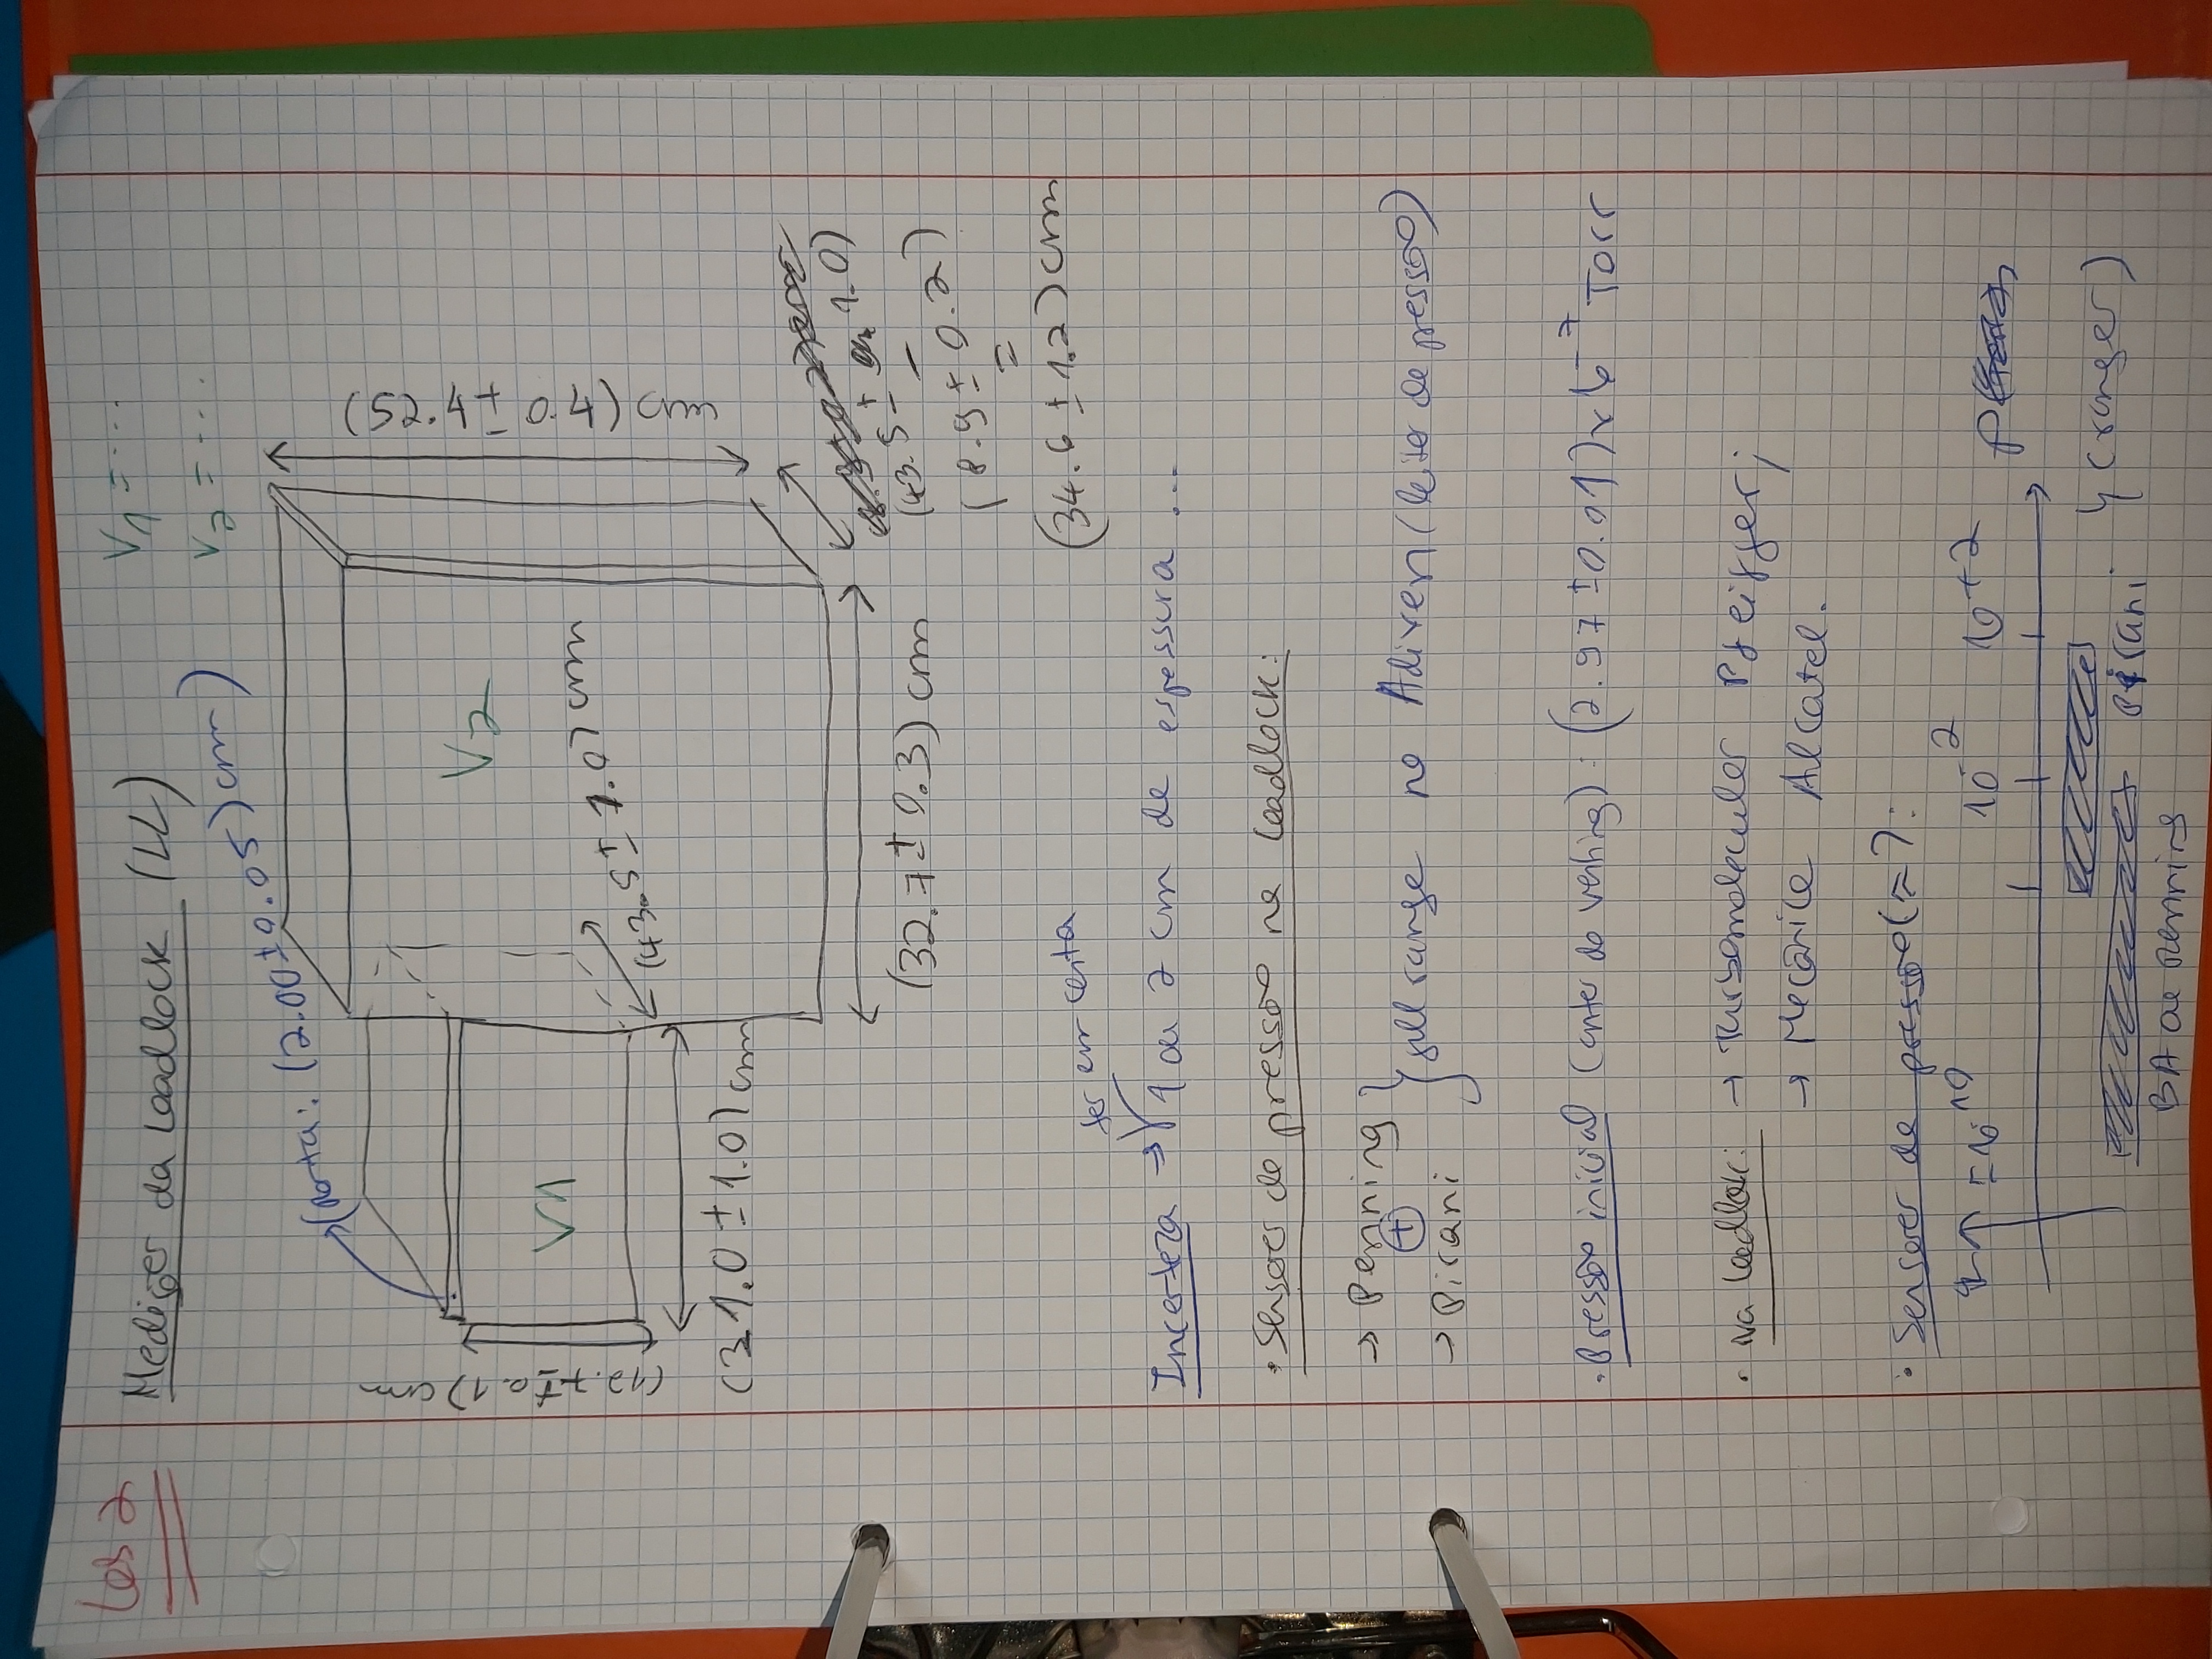 Les 2
Medições da Loadlock (LL)
V1 = ...
V2 = ...
(Porta: (2.00 ± 0.05) cm)
(12.7 ± 0.1) cm
V1
V2
(52.4 ± 0.4) cm
(43.5 ± 1.0) cm
(31.0 ± 1.0) cm
(32.7 ± 0.3) cm
(43.5 ± 1.0)
−
(8.9 ± 0.2)
=
(34.6 ± 1.2) cm
ter em conta
Incerteza → 1 ou 2 cm de espessura ...
• Sensores de pressão na Loadlock:
→ Penning
+
→ Pirani
} full range no Adixen (leitor de pressão)
• Pressão inicial (antes do venting): (2.97 ± 0.01) x 10^-7 Torr
• Na Loadlock: → Turbomolecular Pfeiffer;
→ Mecânica Alcatel.
• Sensores de pressão (≈):
≈10^-10 10^-2 10^+2 P
Pirani (ranges)
BA ou Penning